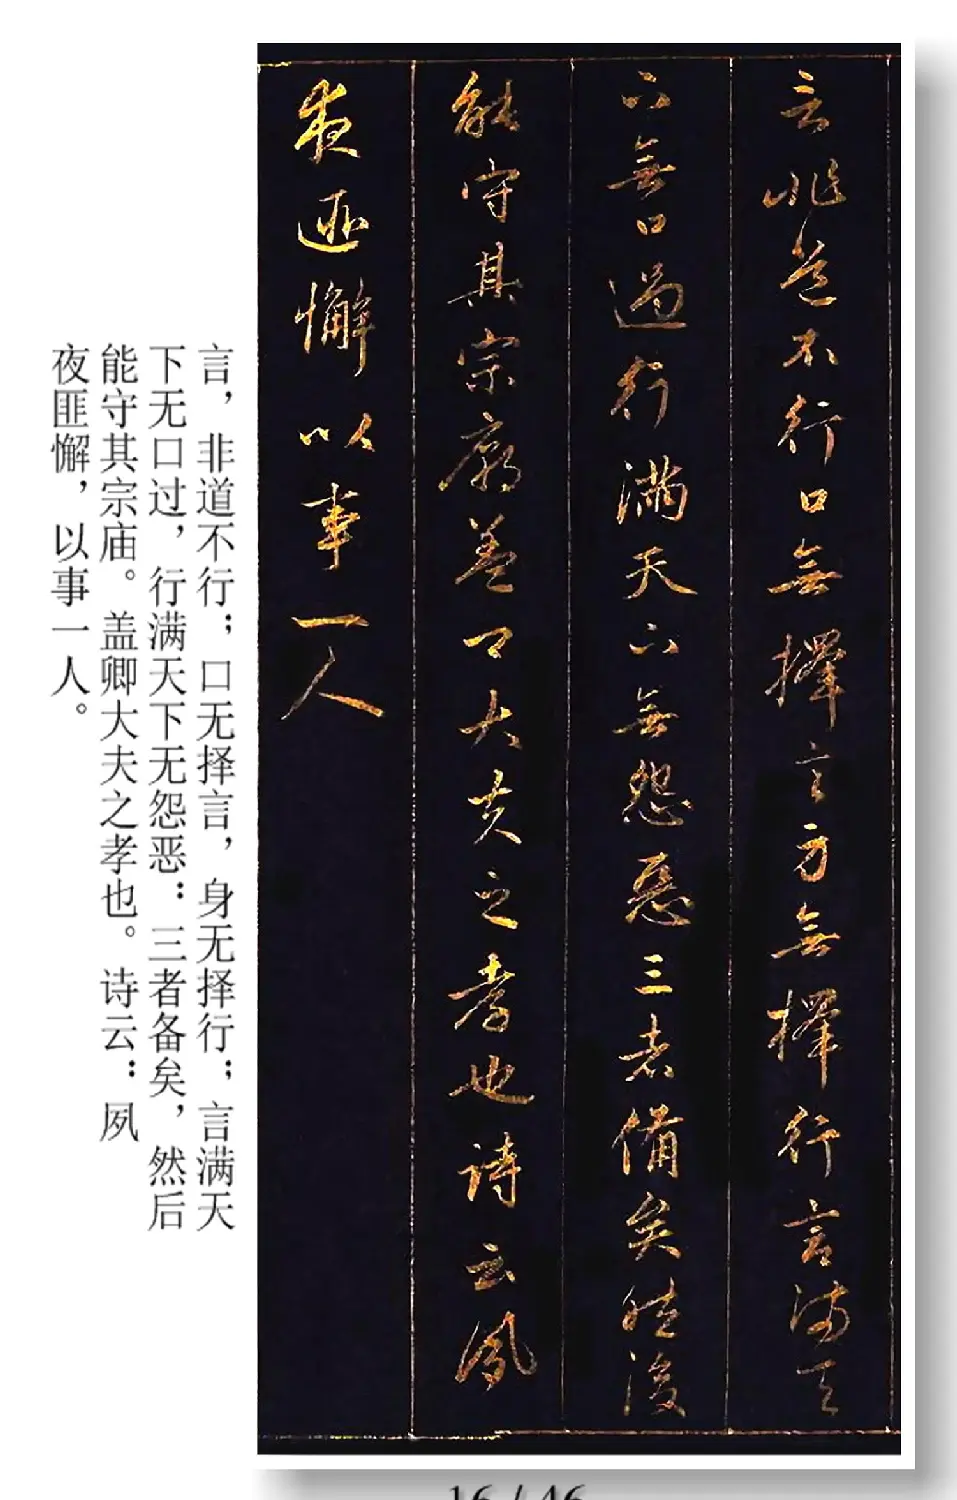 言非道不行口無擇言身無擇行言滿天
下無口過行滿天下無怨惡三者備矣然後
能守其宗廟蓋卿大夫之孝也詩云夙
夜匪懈以事一人
言，非道不行；口无择言，身无择行；言满天
下无口过，行满天下无怨恶：三者备矣，然后
能守其宗庙。盖卿大夫之孝也。诗云：夙
夜匪懈，以事一人。
16 / 46